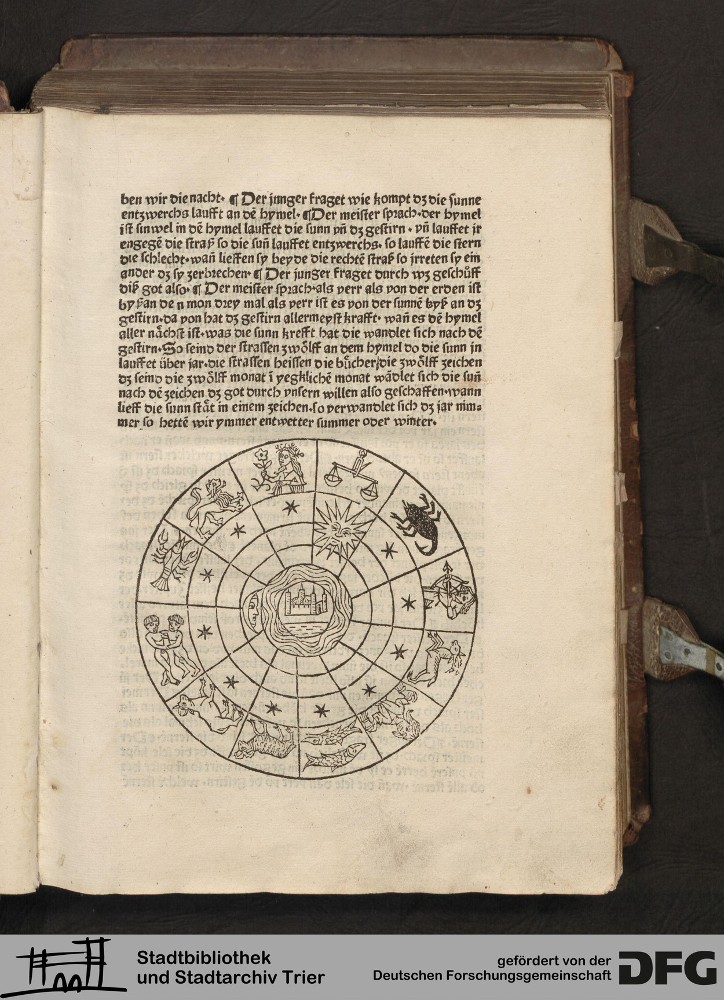 ben wir die nacht. ¶ Der junger fraget wie kompt dz die sunne
entzwerchs laufft an dē hymel. ¶ Der meister sprach. der hymel
ist sinwel in dē hymel lauffet die sunn vñ dz gestirn. vñ lauffet jr
engegē die straß so die suñ lauffet entzwerchs. so lauffē die stern
die schlecht. wañ lieffen sy beyde die rechtē straß so jrreten sy ein
ander dz sy zerbrechen. ¶ Der junger fraget durch wz geschüff
diß got also. ¶ Der meister sprach. als verr als von der erden ist
byß an den mon drey mal als verr ist es von der sunnē byß an dz
gestirn. da von hat dz gestirn allermeyst krafft. wañ es dē hymel
aller nächst ist. was die sunn krefft hat die wandlet sich nach dē
gestirn. So seind der strassen zwölff an dem hymel do die sunn jn
lauffet über jar. die strassen heissen die bücher/die zwölff zeichen
dz seind die zwölff monat ī yegklichē monat wādlet sich die suñ
nach dē zeichen dz got durch vnsern willen also geschaffen. wann
lieff die sunn stät in einem zeichen. so verwandlet sich dz jar nim⸗
mer so hettē wir ymmer entwetter summer oder winter.
Stadtbibliothek
und Stadtarchiv Trier
gefördert von der
Deutschen Forschungsgemeinschaft
DFG